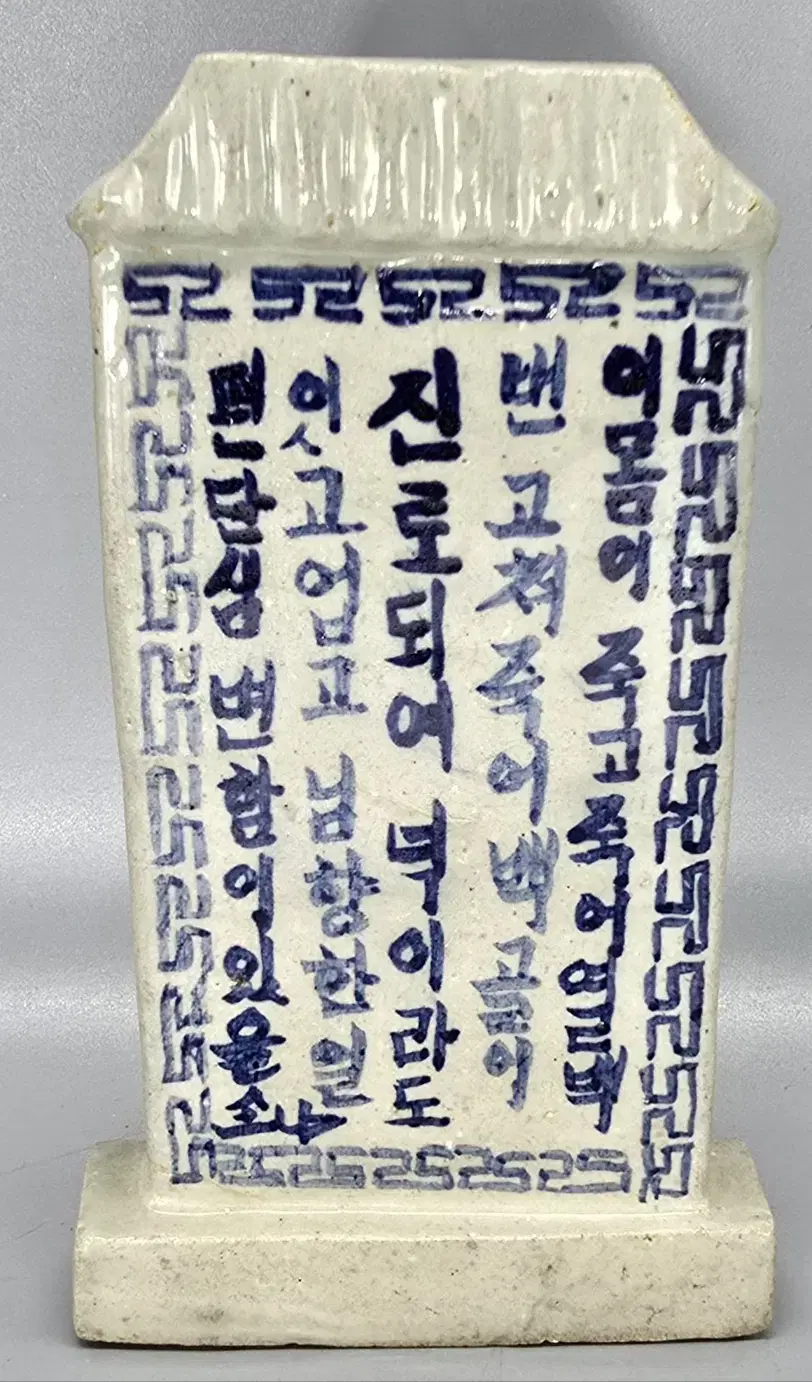 이몸이 죽고죽어 일백
번 고쳐 죽어 백골이
진토되여 넉이라도
잇고업고 님향한일
편단심 변함이있을소